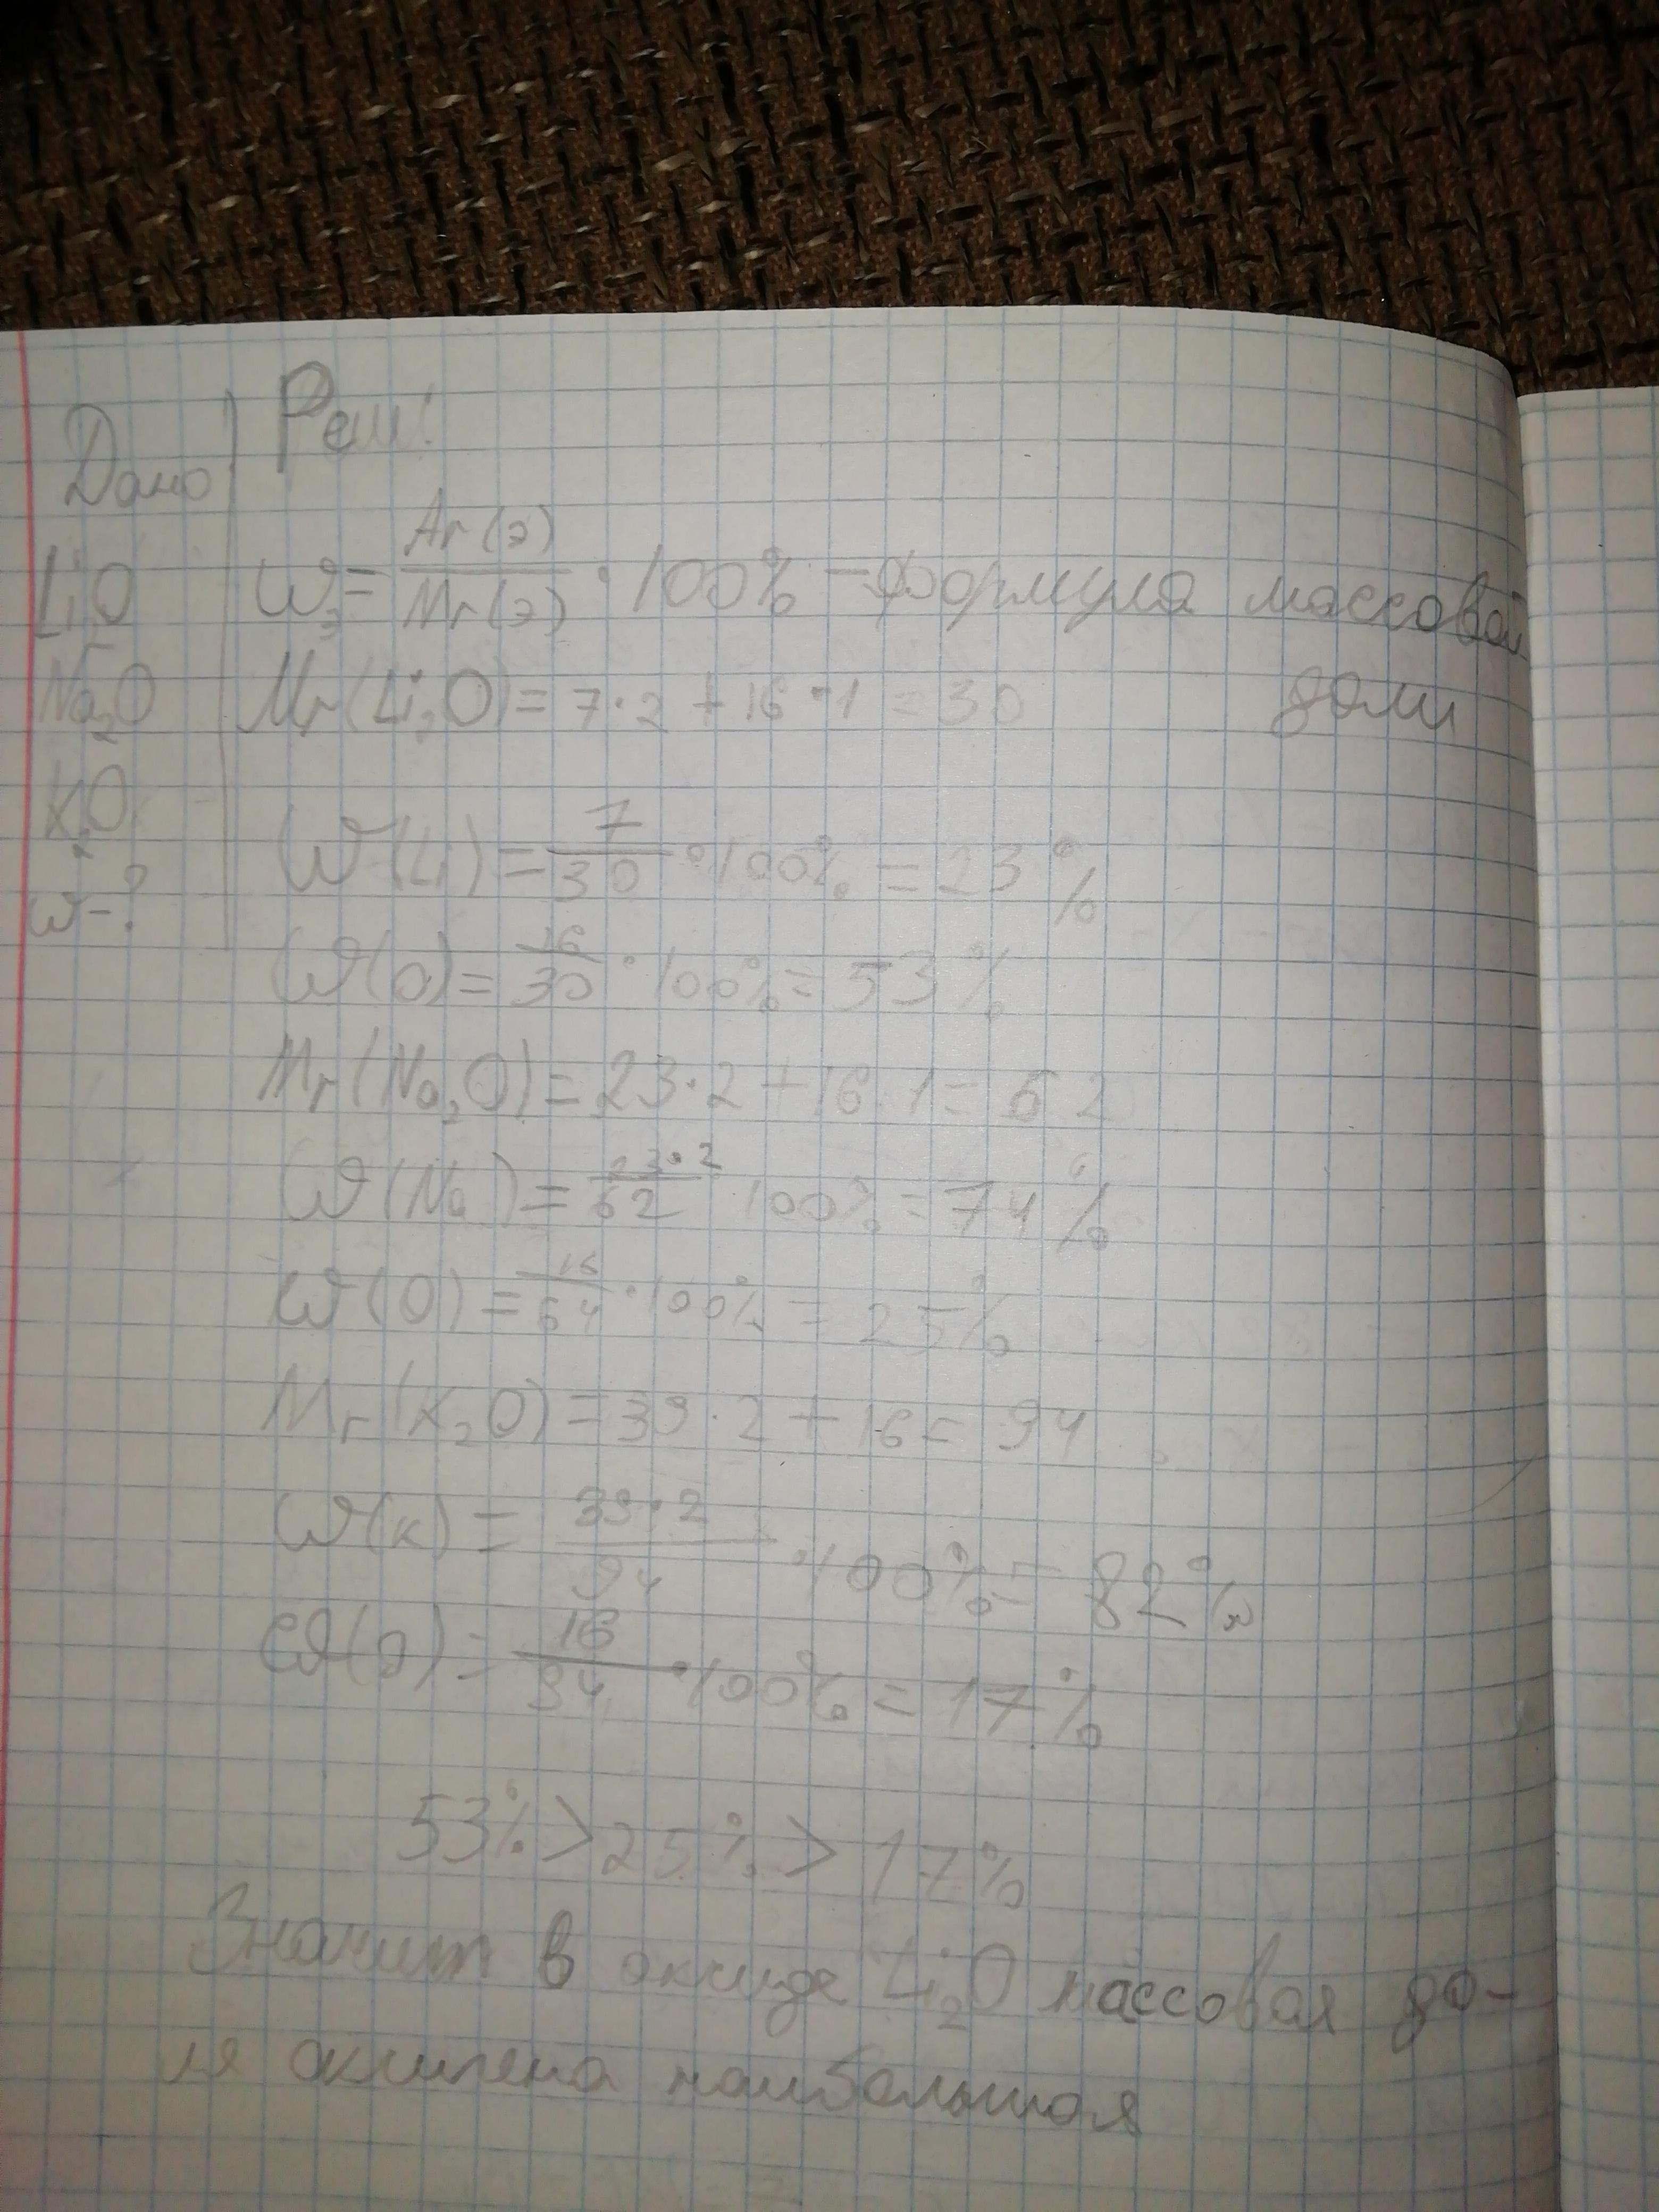 Дано
Li2O
Na2O
K2O
w-?
Реш:
Wэ = Ar(э)/Mr(э) · 100% - формула массовой
доли
Mr(Li2O) = 7·2 + 16·1 = 30
W(Li) = 7/30 · 100% = 23%
W(O) = 16/30 · 100% = 53%
Mr(Na2O) = 23·2 + 16·1 = 62
W(Na) = 23·2/62 100% = 74%
W(O) = 16/64 · 100% = 25%
Mr(K2O) = 39·2 + 16 = 94
W(K) = 39·2/94 · 100% = 82%
W(O) = 16/94 · 100% = 17%
53% > 25% > 17%
Значит в оксиде Li2O массовая до-
ля окилена наибольшая